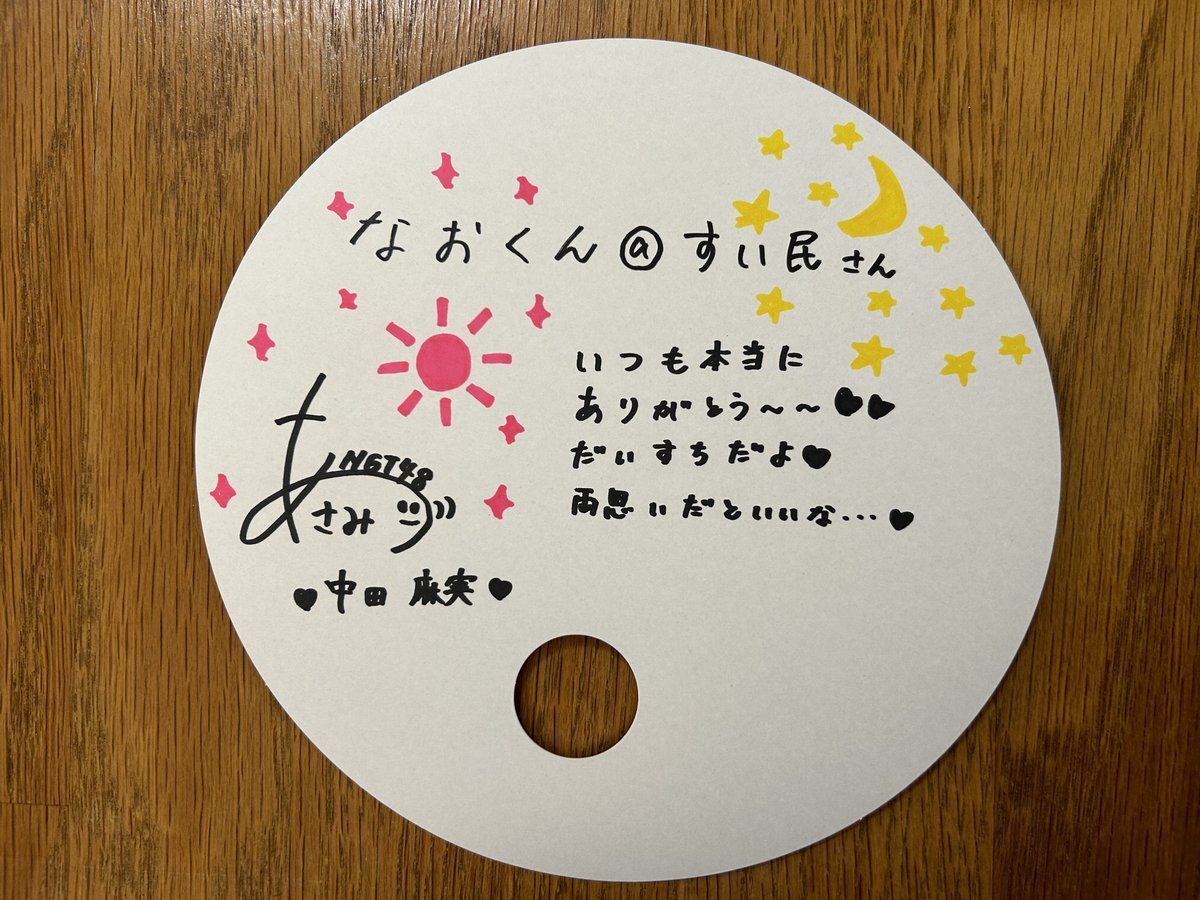 なおくん@すい民さん
いつも本当に
ありがとう〜〜♥♥
だいすちだよ♥
両思いだといいな…♥
NGT48
あさみ
♥中田 麻実♥